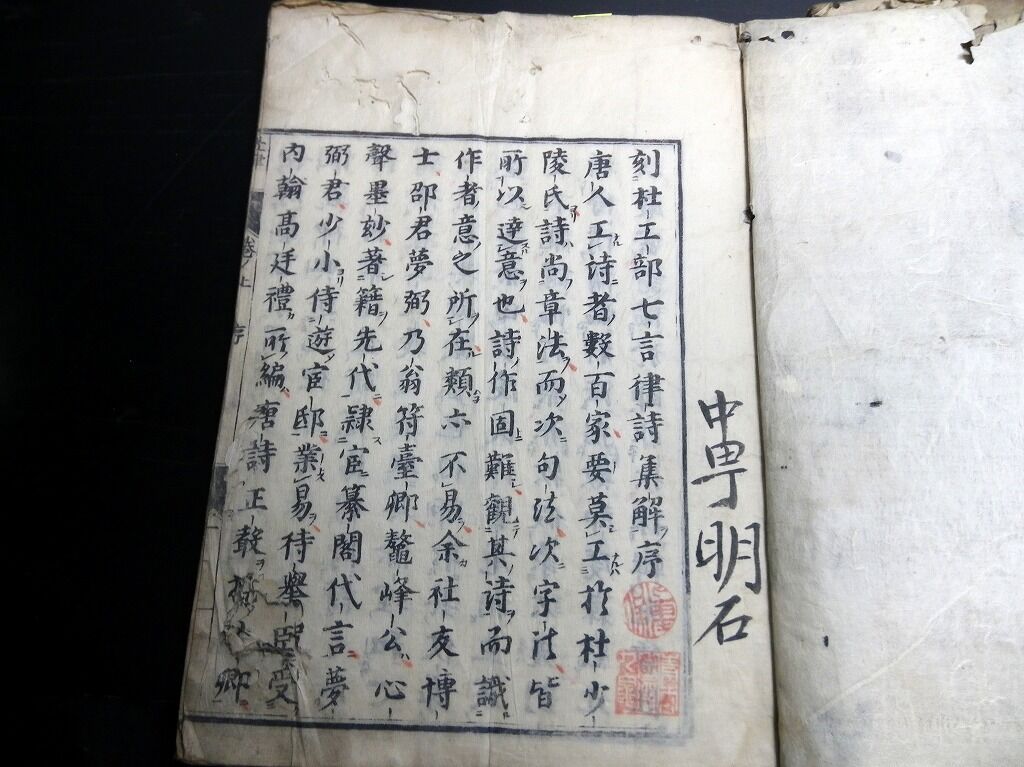 中甼明石
刻杜工部七言律詩集解序
唐人工詩者數百家要莫工於杜少
陵氏詩尚章法而次句法次字法皆
所以達意也詩作固難觀其詩而識
作者意之所在類亦不易余社友博
士邵君夢弼乃翁符臺卿鼇峰公心
聲墨玅著籍先代隷宦纂閣代言夢
弼君少小侍遊宦邸業易待舉受
內翰高廷禮所編唐詩正聲卿
序